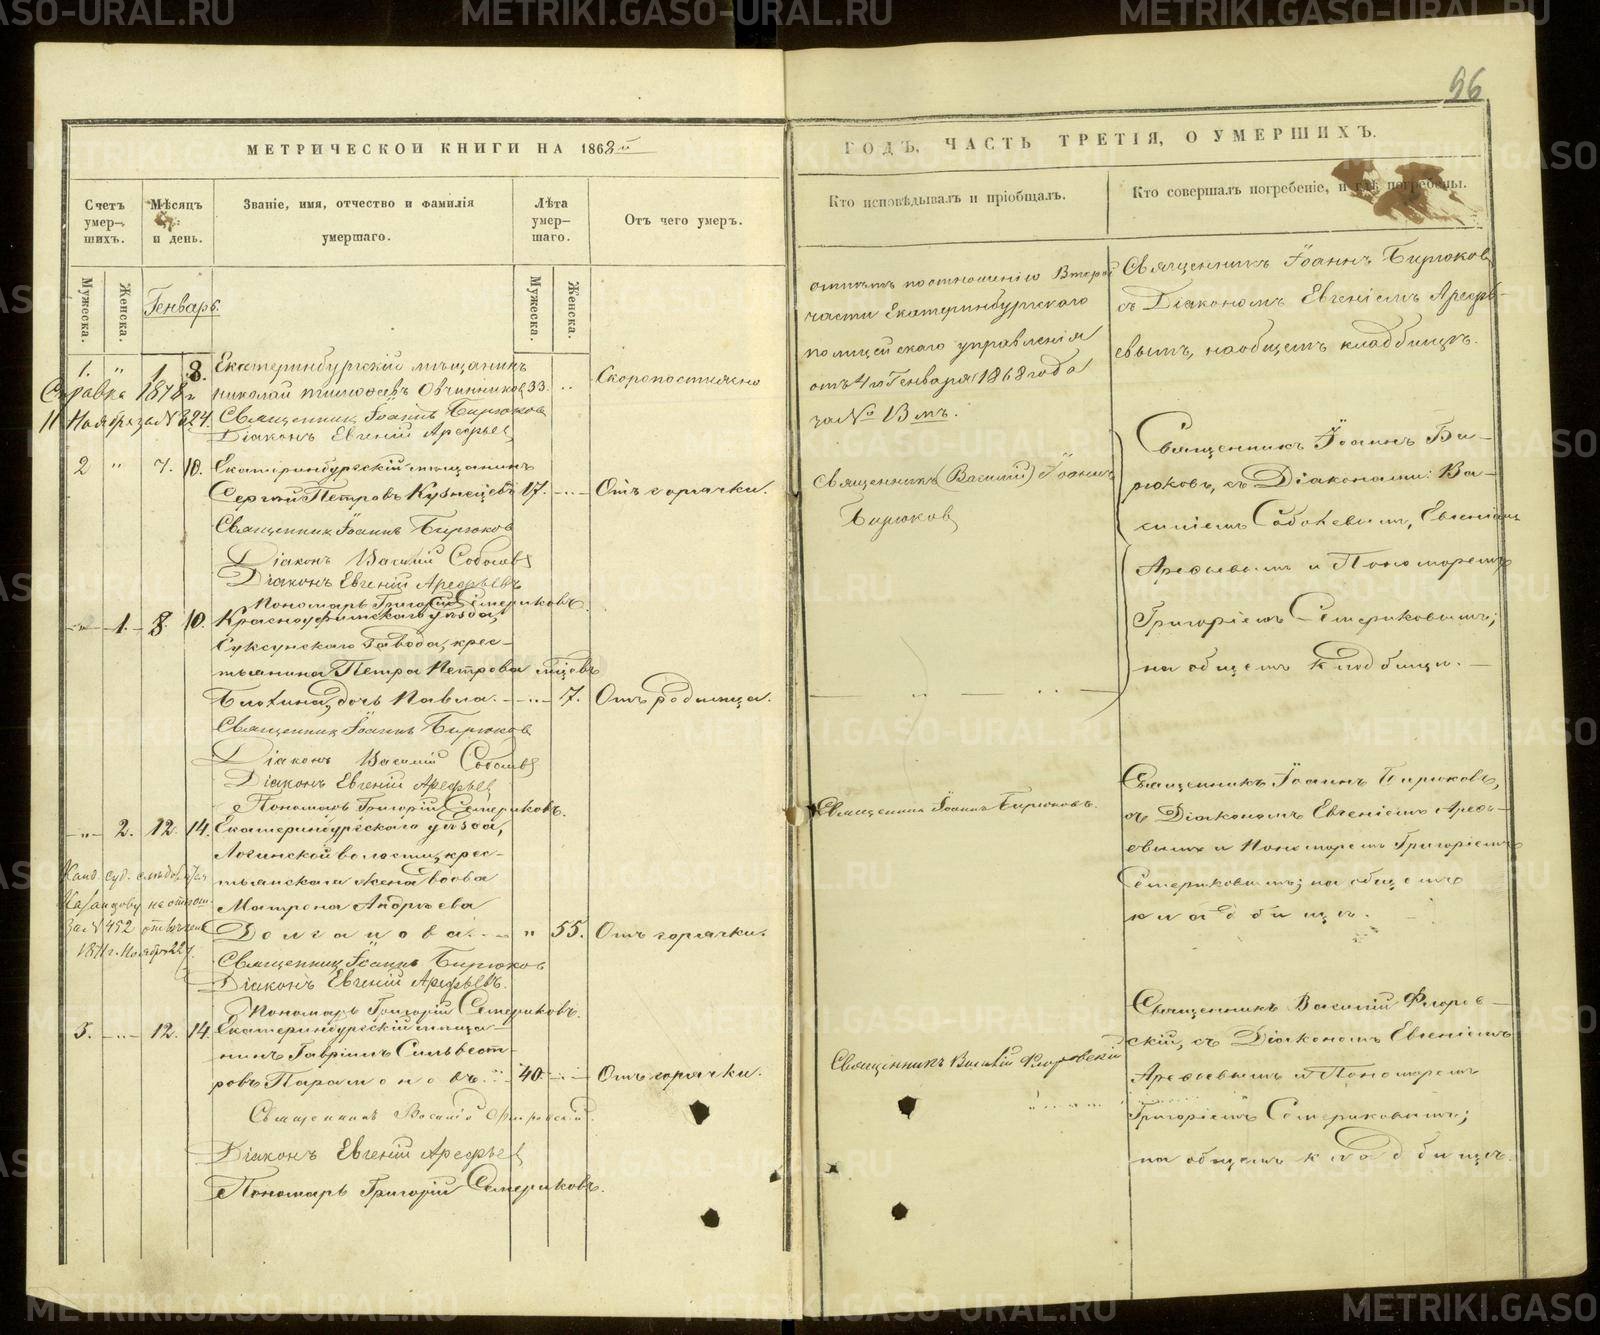 96
МЕТРИЧЕСКОЙ КНИГИ НА 1868й
ГОДЪ, ЧАСТЬ ТРЕТІЯ, О УМЕРШИХЪ.
Счетъ умер-шихъ.
Мѣсяцъ и день.
Званіе, имя, отчество и фамилія умершаго.
Лѣта умер-шаго.
Отъ чего умеръ.
Кто исповѣдывалъ и пріобщалъ.
Кто совершалъ погребеніе, и гдѣ погребены.
Мужеска.
Женска.
Мужеска.
Женска.
Генварь.
1. " 1. 3. Екатеринбургскій мѣщанинъ
Николай Овчинниковъ 33. Скоропостижно
Справка 1878 г.
11 Ноября за № 324.
Священникъ Іоаннъ Бирюковъ
Діаконъ Евгеній Арефьевъ
по отношенію Второй
части Екатеринбургскаго
полицейскаго управленія
отъ 4го Генваря 1868 года
за № 13мъ.
Священникъ Іоаннъ Бирюковъ
съ Діакономъ Евгеніемъ Арефь-
евымъ, на общемъ кладбищѣ.
2 " 7. 10. Екатеринбургскій мѣщанинъ
Сергій Петровъ Кузнецовъ 17. Отъ горячки.
Священникъ Іоаннъ Бирюковъ
Діаконъ Василій Соболевъ
Діаконъ Евгеній Арефьевъ
Пономарь Григорій Семериковъ.
Священникъ (Василій) Іоаннъ
Бирюковъ
Священникъ Іоаннъ Би-
рюковъ, съ Діаконами: Ва-
силіемъ Соболевымъ, Евгеніемъ
Арефьевымъ и Пономаремъ
Григоріемъ Семериковымъ;
на общемъ кладбищѣ.
" 1. 8. 10. Красноуфимскаго уѣзда,
Суксунскаго завода, крес-
тьянина Петра Петрова
дочь Павла. 7. Отъ родимца.
Священникъ Іоаннъ Бирюковъ
Діаконъ Василій Соболевъ
Діаконъ Евгеній Арефьевъ
Пономарь Григорій Семериковъ.
" 2. 12. 14. Екатеринбургскаго уѣзда,
Логинской волости, крес-
тьянская жена вдова
Матрена Андреева
Долганова. " 55. Отъ горячки.
Канд. суд.
за № 452
1871 г. Ноября 22
Священникъ Іоаннъ Бирюковъ
Діаконъ Евгеній Арефьевъ.
Пономарь Григорій Семериковъ.
Священникъ Іоаннъ Бирюковъ.
Священникъ Іоаннъ Бирюковъ,
съ Діакономъ Евгеніемъ Арефь-
евымъ и Пономаремъ Григоріемъ
Семериковымъ; на общемъ
кладбищѣ.
3. 12. 14. Екатеринбургскій мѣща-
нинъ Гавріилъ Сильвест-
ровъ Парамоновъ. 40. Отъ горячки.
Священникъ Василій Флоровскій.
Діаконъ Евгеній Арефьевъ
Пономарь Григорій Семериковъ.
Священникъ Василій Флоровскій
Священникъ Василій Флоров-
скій, съ Діакономъ Евгеніемъ
Арефьевымъ и Пономаремъ
Григоріемъ Семериковымъ;
на общемъ кладбищѣ.
METRIKI.GASO-URAL.RU